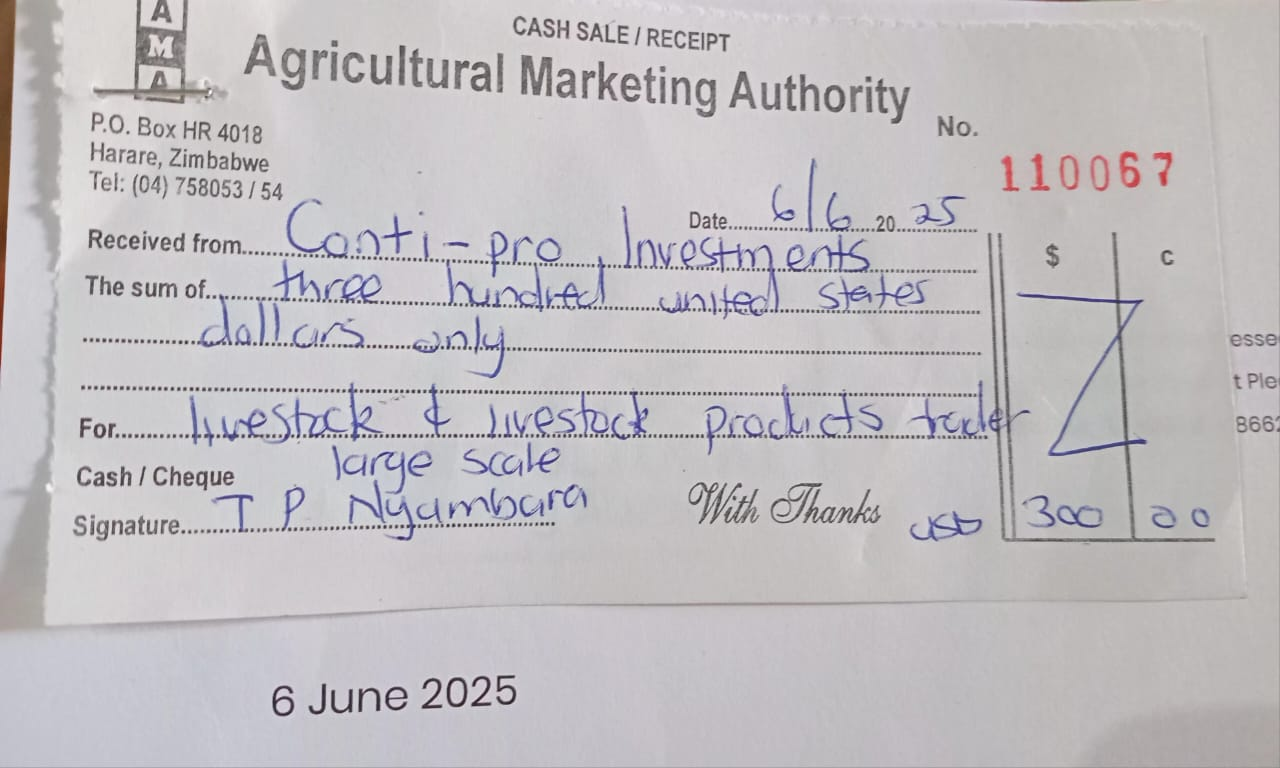 A
M
A
CASH SALE / RECEIPT
Agricultural Marketing Authority
P.O. Box HR 4018
Harare, Zimbabwe
Tel: (04) 758053 / 54
No.
110067
Date 6/6 20 25
Received from Conti-pro Investments
$ C
The sum of three hundred united states
dollars only
For livestock & livestock products trader
large scale
Cash / Cheque
Signature T P Nyambara
With Thanks
USD 300 00
esse
t Ple
866
6 June 2025